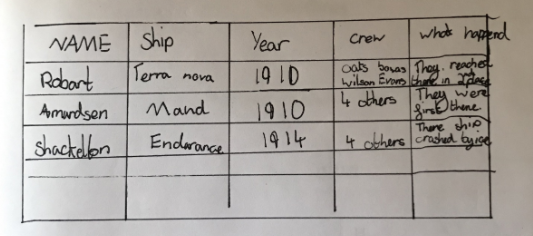 NAME Ship Year crew whats happend
Robart Terra nova 1910 oats bowas
wilson Evans They reached
there in
Amundsen Maud 1910 4 others They were
first there
Shackelton Endurance 1914 4 others There ship
crashed by ice